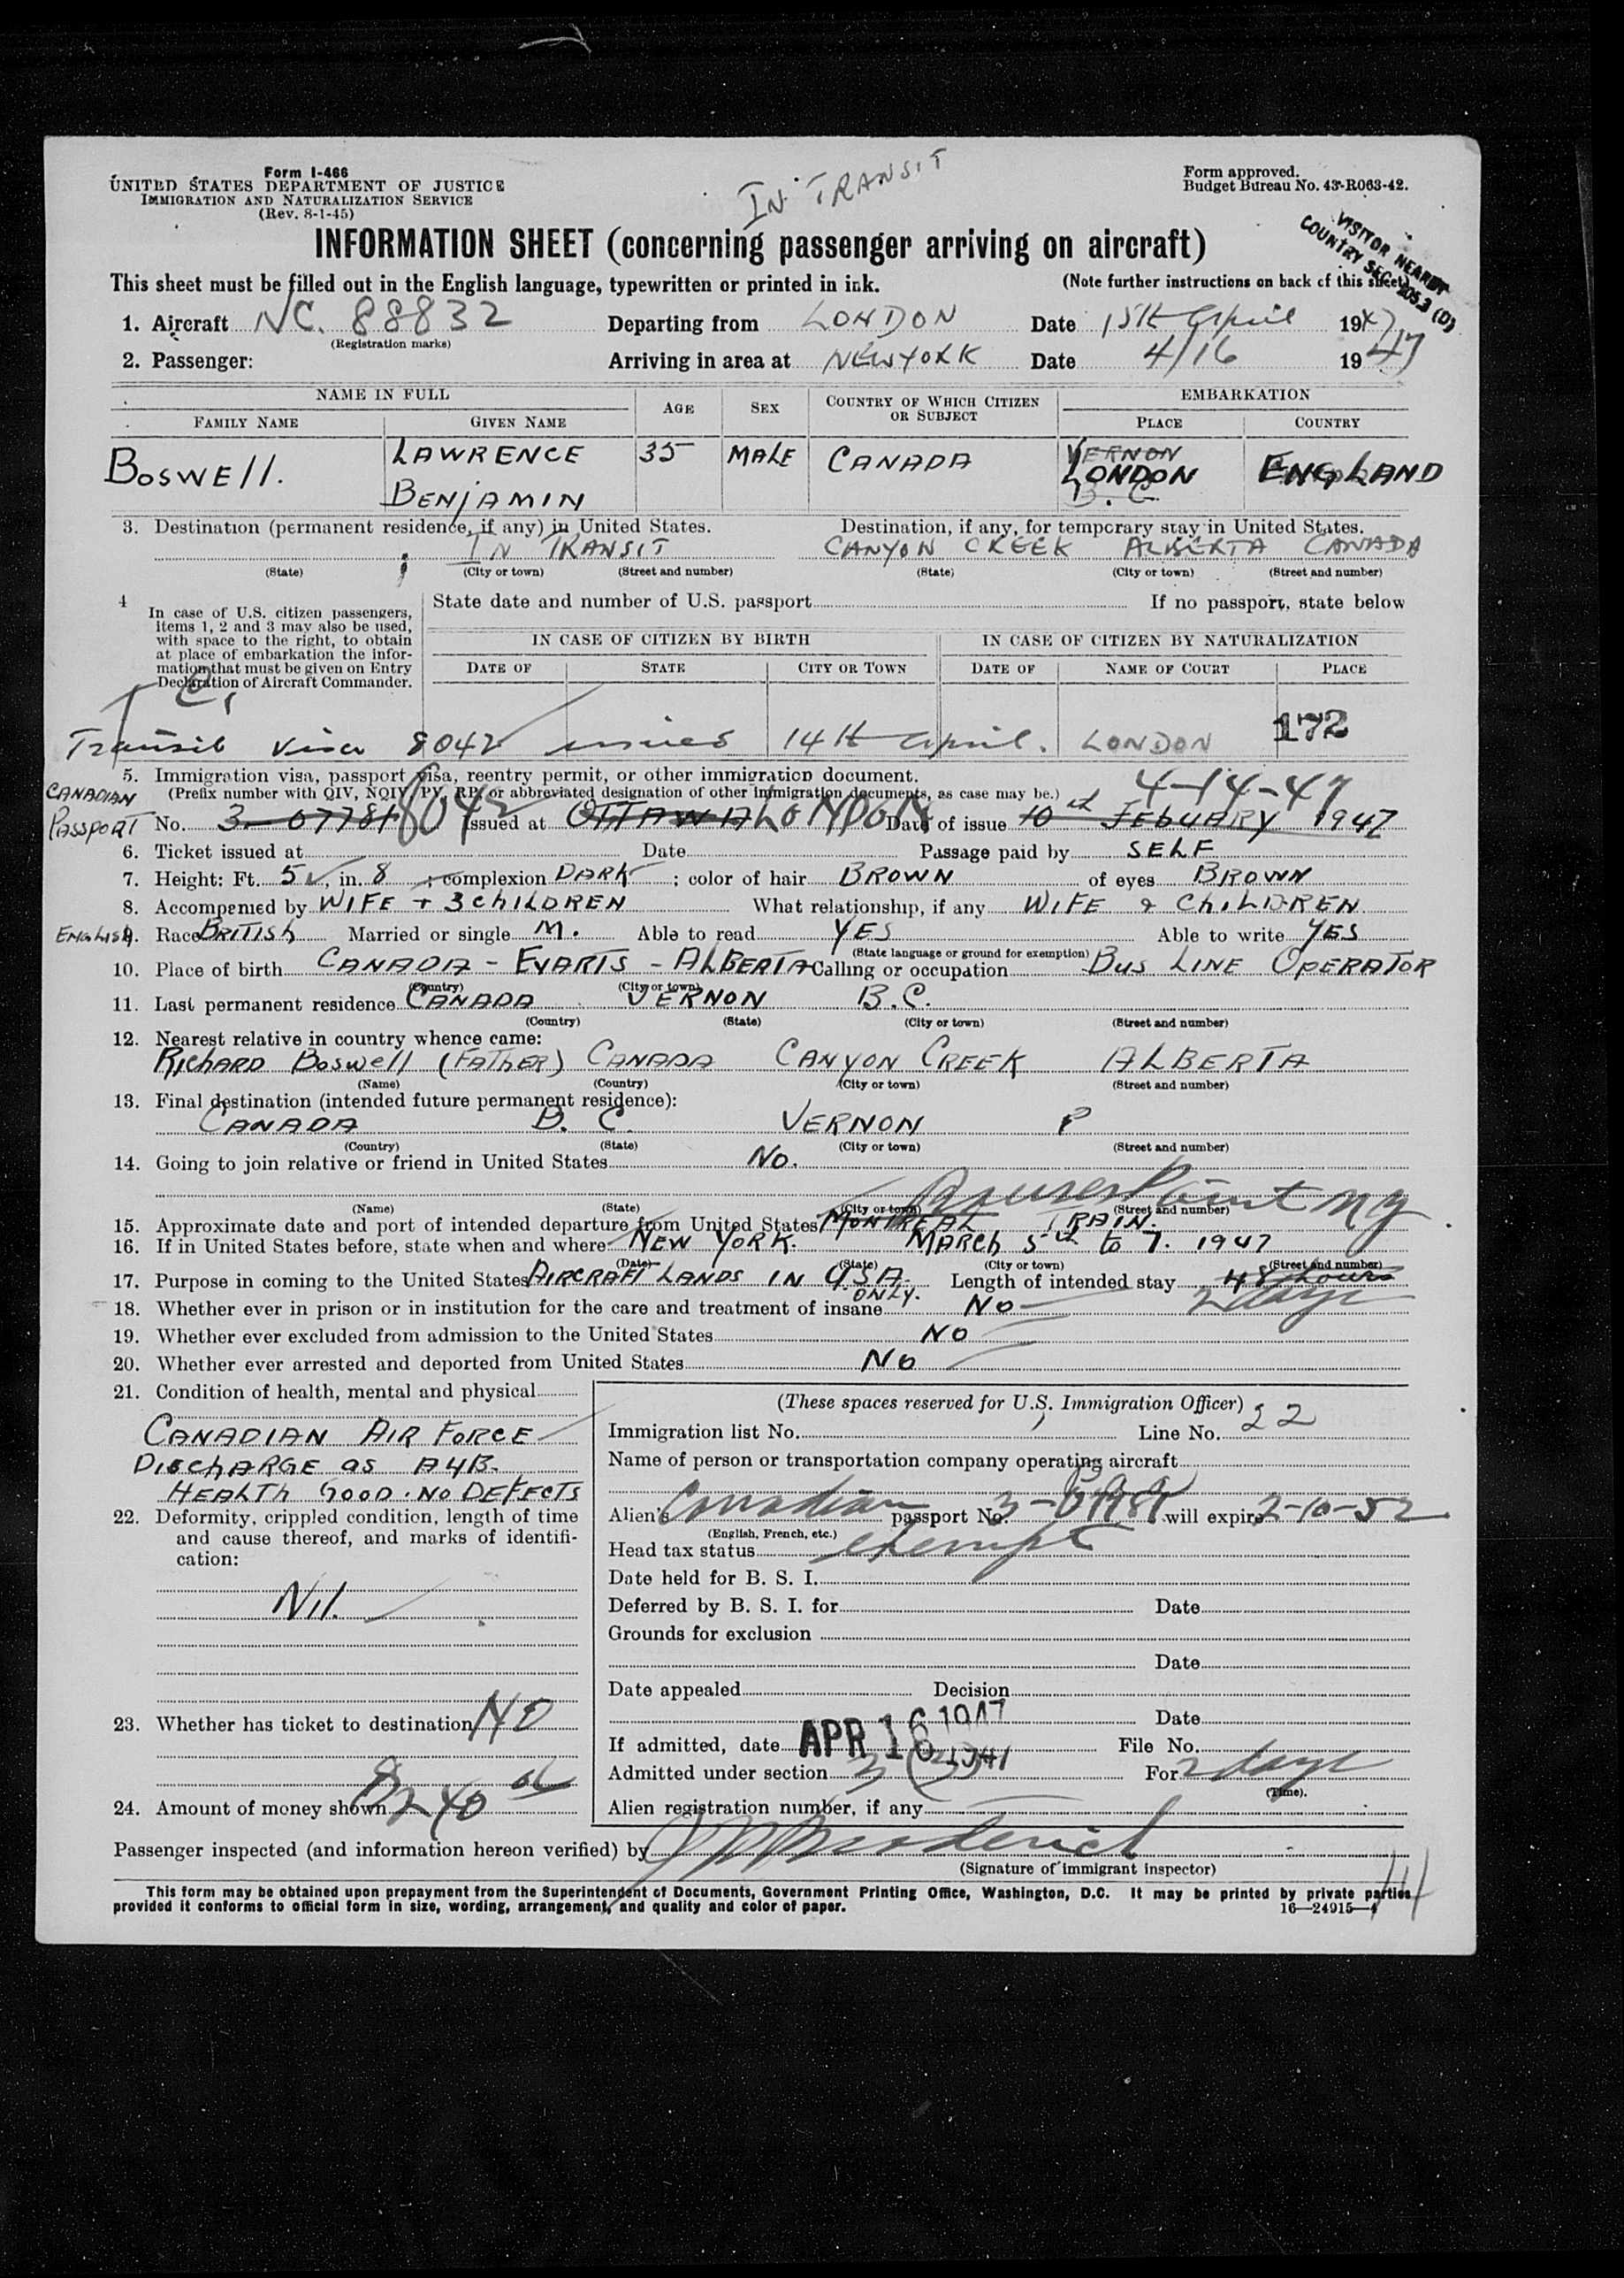 Form I-466
UNITED STATES DEPARTMENT OF JUSTICE
IMMIGRATION AND NATURALIZATION SERVICE
(Rev. 8-1-45)
IN TRANSIT
Form approved.
Budget Bureau No. 43-R063-42.
VISITOR NEAREST
COUNTRY SEC.
INFORMATION SHEET (concerning passenger arriving on aircraft)
This sheet must be filled out in the English language, typewritten or printed in ink. (Note further instructions on back of this sheet)
1. Aircraft NC. 88832 Departing from LONDON Date 15th April 1947
(Registration marks)
2. Passenger: Arriving in area at NEW YORK Date 4/16 1947
NAME IN FULL AGE SEX COUNTRY OF WHICH CITIZEN OR SUBJECT EMBARKATION
FAMILY NAME GIVEN NAME PLACE COUNTRY
BOSWELL. LAWRENCE 35 MALE CANADA VERNON
LONDON ENGLAND
BENJAMIN B.C.
3. Destination (permanent residence, if any) in United States. Destination, if any, for temporary stay in United States.
IN TRANSIT CANYON CREEK ALBERTA CANADA
(State) (City or town) (Street and number) (State) (City or town) (Street and number)
4 In case of U.S. citizen passengers, items 1, 2 and 3 may also be used, with space to the right, to obtain at place of embarkation the information that must be given on Entry Declaration of Aircraft Commander.
State date and number of U.S. passport If no passport, state below
IN CASE OF CITIZEN BY BIRTH IN CASE OF CITIZEN BY NATURALIZATION
DATE OF STATE CITY OR TOWN DATE OF NAME OF COURT PLACE
Transit Visa 8042 issued 14th April. LONDON 172
5. Immigration visa, passport visa, reentry permit, or other immigration document. 4-14-47
CANADIAN (Prefix number with QIV, NQIV, PV, RP, or abbreviated designation of other immigration documents, as case may be.)
PASSPORT No. 3-07781 8042 Issued at OTTAWA LONDON Date of issue 10th FEBUARY 1947
6. Ticket issued at Date Passage paid by SELF
7. Height: Ft. 5, in. 8; complexion DARK; color of hair BROWN of eyes BROWN
8. Accompanied by WIFE + 3 CHILDREN What relationship, if any WIFE & CHILDREN
ENGLISH 9. Race BRITISH Married or single M. Able to read YES Able to write YES
(State language or ground for exemption)
10. Place of birth CANADA - EVARTS - ALBERTA Calling or occupation BUS LINE OPERATOR
(Country) (City or town)
11. Last permanent residence CANADA VERNON B.C.
(Country) (State) (City or town) (Street and number)
12. Nearest relative in country whence came:
RICHARD BOSWELL (FATHER) CANADA CANYON CREEK ALBERTA
(Name) (Country) (City or town) (Street and number)
13. Final destination (intended future permanent residence):
CANADA B.C. VERNON ?
(Country) (State) (City or town) (Street and number)
14. Going to join relative or friend in United States No.
Rouses Point NY
(Name) (State) (City or town) (Street and number)
15. Approximate date and port of intended departure from United States MONTREAL TRAIN.
16. If in United States before, state when and where NEW YORK. MARCH 5th to 7. 1947
(Date) (State) (City or town) (Street and number)
17. Purpose in coming to the United States AIRCRAFT LANDS IN USA ONLY. Length of intended stay 48 hours
2 days
18. Whether ever in prison or in institution for the care and treatment of insane No
19. Whether ever excluded from admission to the United States No
20. Whether ever arrested and deported from United States No
21. Condition of health, mental and physical
CANADIAN AIR FORCE
DISCHARGE as A4B.
HEALTH GOOD. NO DEFECTS
22. Deformity, crippled condition, length of time and cause thereof, and marks of identification:
Nil.
23. Whether has ticket to destination NO
24. Amount of money shown $240
(These spaces reserved for U.S. Immigration Officer)
Immigration list No. Line No. 22
Name of person or transportation company operating aircraft
Alien's Canadian passport No. 3- will expire 2-10-52
(English, French, etc.)
Head tax status exempt
Date held for B. S. I.
Deferred by B. S. I. for Date
Grounds for exclusion
Date
Date appealed Decision
Date
If admitted, date APR 16 1947 File No.
Admitted under section 3 (3) For 2 days
(Time).
Alien registration number, if any
Passenger inspected (and information hereon verified) by
(Signature of immigrant inspector)
This form may be obtained upon prepayment from the Superintendent of Documents, Government Printing Office, Washington, D.C. It may be printed by private parties
provided it conforms to official form in size, wording, arrangement, and quality and color of paper. 16—24915—4